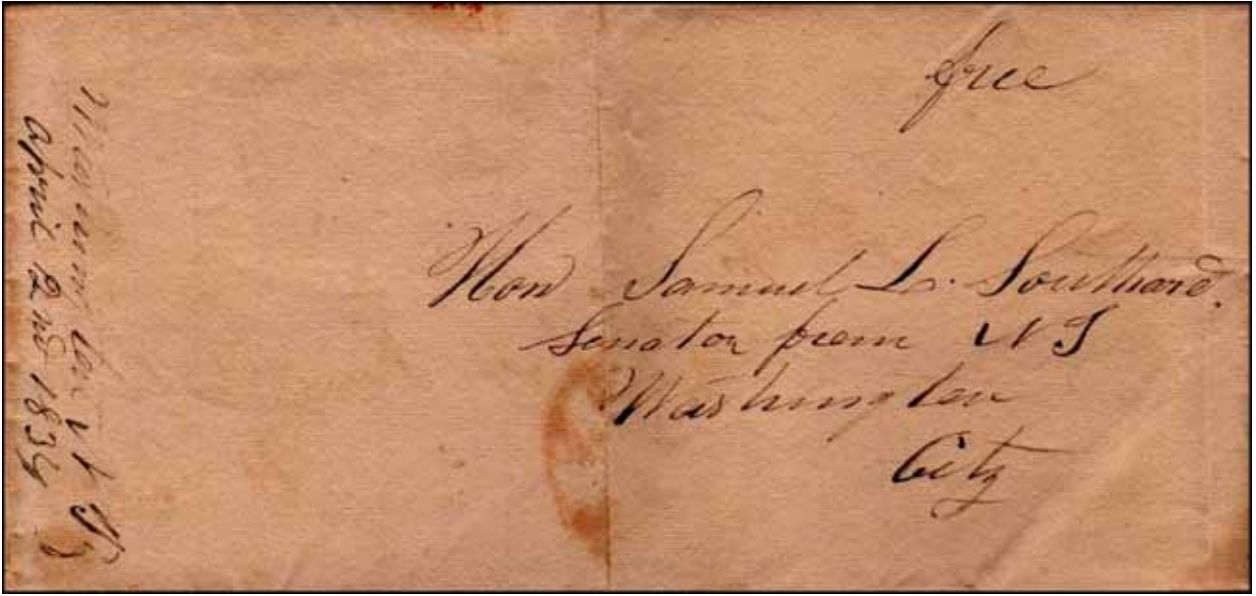 free
Hon Samuel L. Southard.
Senator from N J
Washington
City
N J
April 2nd 1834